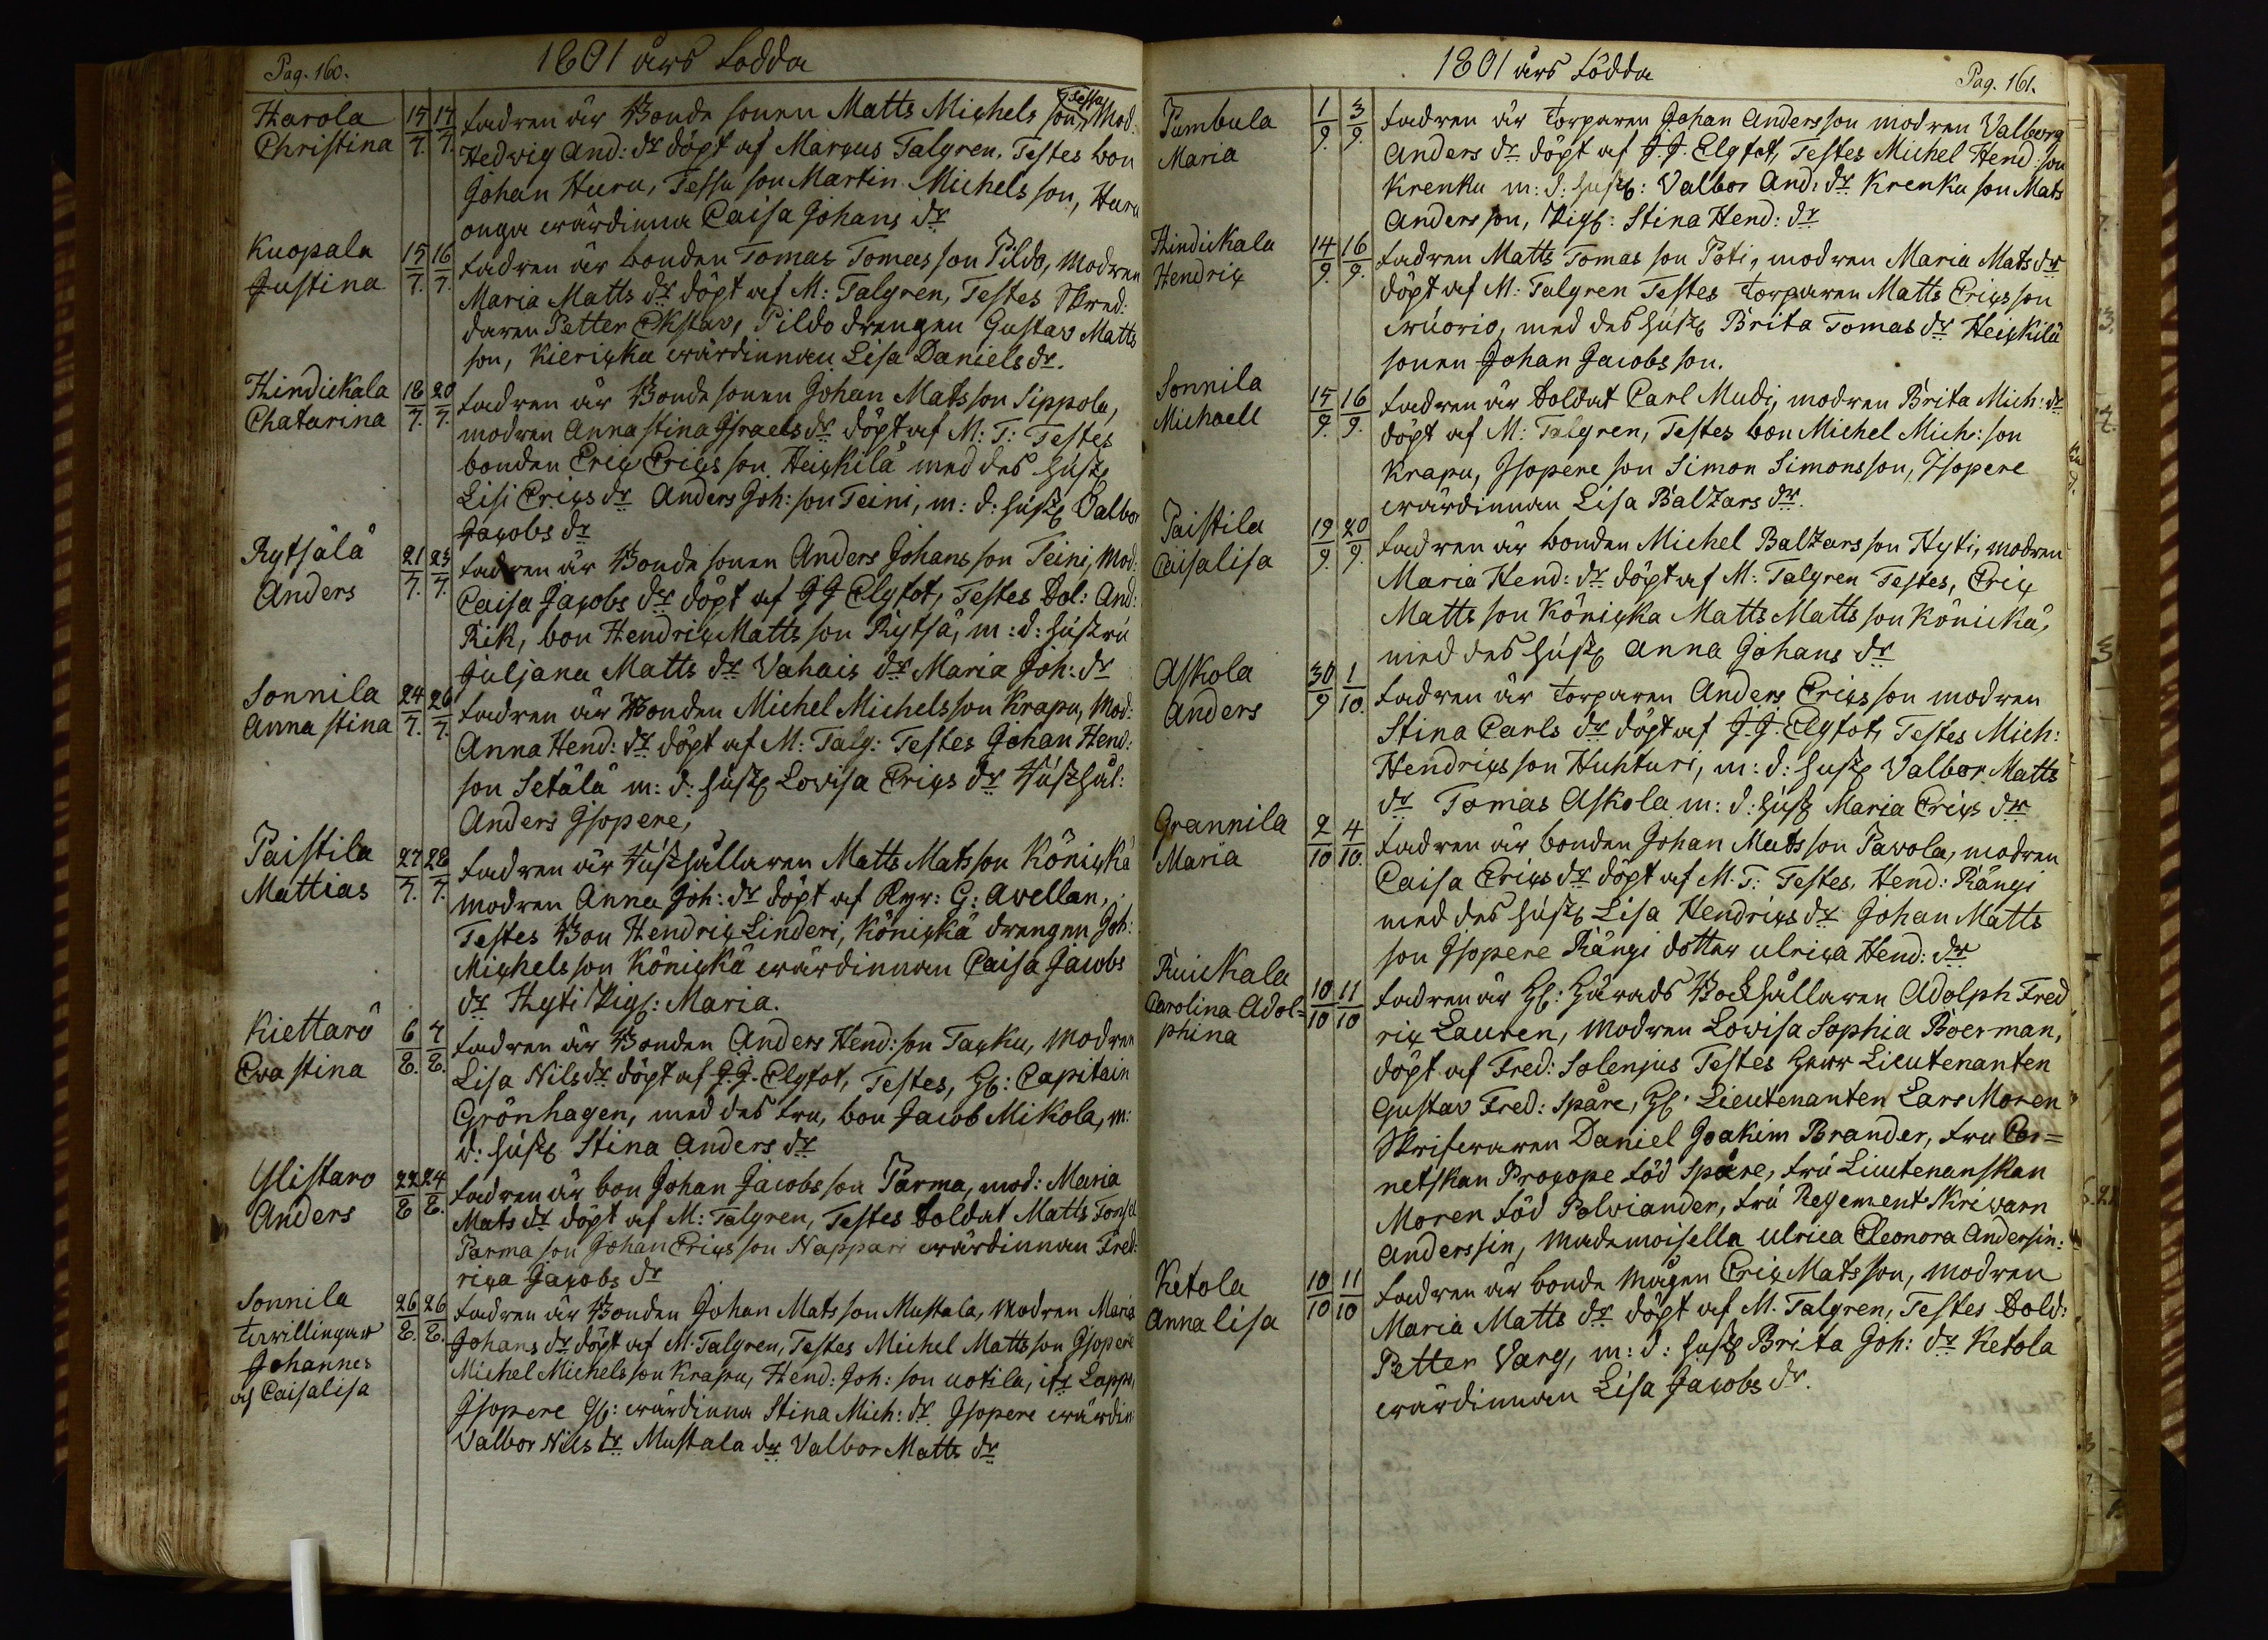 Pag. 160.
1801 års Födda
Harola
Christina
15/7. 17/7.
Fadren är Bonde sonen Matts Michels son Tessu, Mod:
Hedvig And: dr döpt af Marcus Talgren, Testes bon
Johan Huru, Tessu son Martin Michels son, Huru
onga wärdinna Caisa Johans dr
Kuopala
Justina
15/7. 16/7.
Fadren är bonden Tomas Tomas son Pildo, Modren
Maria Matts dr döpt af M: Talgren, Testes Skred:
daren Petter Ekstav, Pildo drengen Gustav Matts
son, Kiericka wärdinnan Lisa Daniels dr.
Hindickala
Chatarina
18/7. 20/7.
Fadren är Bonde sonen Johan Mats son Sippola,
modren Anna stina Israels dr döpt af M: T: Testes
bonden Eric Erics son Heickilä med des hust
Lisi Erics dr Anders Joh: son Teini, m: d: hust Valbor
Jacobs dr
Rytsälä
Anders
21/7. 23/7.
Fadren är Bonde sonen Anders Johans son Teini, Mod:
Caisa Jacobs dr döpt af J J Elgfot, Testes Sol: And:
Rik, bon Hendric Matts son Rytsä, m: d: hustru
Juljana Matts dr Vahais dr Maria Joh: dr
Sonnila
Anna stina
24/7. 26/7.
Fadren är Bonden Michel Michels son Krapu, Mod:
Anna Hend: dr döpt af M: Talg: Testes Johan Hend:
son Setälä m: d: hust Lovisa Erics dr Husshål:
Anders Isopere,
Paistila
Mattias
27/7. 28/7.
Fadren är Husshållaren Matts Mats son Könickä
modren Anna Joh: dr döpt af Rgr: G: Avellan,
Testes Bon Hendric Linderi, Könickä drengen Joh:
Michels son Könickä wärdinnan Caisa Jacobs
dr Hyti Pig: Maria.
Kiettarö
Eva stina
6/8. 7/8.
Fadren är Bonden Anders Hend: son Tacku, Modren
Lisa Nils dr döpt af J. J. Elgfot, Testes, H: Capitain
Grönhagen, med des fru, bon Jacob Mikola, m:
d: hust Stina Anders dr
Ylistaro
Anders
22/8 24/8.
Fadren är bon Johan Jacobs son Parma, mod: Maria
Mats dr döpt af M: Talgren, Testes Soldat Matts Fonsel
Parma son Johan Erics son Nappari wärdinnan Fred:
rica Jacobs dr
Sonnila
twillingar
Johannes
och Caisalisa
26/8. 26/8.
Fadren är Bonden Johan Mats son Mustala, Modren Maria
Johans dr döpt af M: Talgren, Testes Michel Matts son Isopere
Michel Michels son Krapu, Hend: Joh: son uotila, Lapp,
Isopere G: wärdinna Stina Mich: dr. Isopere wärdin
Valbor Nils dr Mustala dr Valbor Matts dr
1801 års Födda
Pag. 161.
Pumbula
Maria
1/9. 3/9.
Fadren är Torparen Johan Anders son modren Valborg
Anders dr döpt af J. J. Elgfot, Testes Michel Hend: son
Krenku m: d: hust: Valbor And: dr Krenku son Mats
Anders son, Pig: Stina Hend: dr
Hindickala
Hendric
14/9. 16/9.
Fadren Matts Tomas son Poti, modren Maria Mats dr
döpt af M: Talgren Testes Torparen Matts Erics son
wuorio, med des hust Brita Tomas dr Heickilä
sonen Johan Jacobs son.
Sonnila
Michaell
15/9. 16/9.
Fadren är Soldat Carl Mudi, modren Brita Mich: dr
döpt af M: Talgren, Testes bon Michel Mich: son
Krapu, Isopere son Simon Simons son, Isopere
wärdinnan Lisa Baltzars dr.
Paistila
Caisalisa
19/9. 20/9.
Fadren är bonden Michel Baltzars son Hyti, modren
Maria Hend: dr döpt af M: Talgren Testes, Eric
Matts son Könicka Matts Matts son Könickä,
med des hust Anna Johans dr
Askola
Anders
30/9 1/10.
Fadren är Torparen Anders Erics son modren
Stina Carls dr döpt af J. J. Elgfot, Testes Mich:
Hendrics son Huhturi, m: d: hust Valbor Matts
dr Tomas Askola m: d: hust Maria Erics dr
Grannila
Maria
2/10 4/10.
Fadren är bonden Johan Mats son Pavola, modren
Caisa Erics dr döpt af M. T: Testes, Hend: Rängi
med des hust Lisa Hendrics dr Johan Matts
son Isopere Rängi dotter ulrica Hend: dr
Ruickala
Carolina Adol=
phina
10/10 11/10
Fadren är H: Härads Bockhållaren Adolph Fred
ric Lauren, Modren Lovisa Sophia Boerman,
döpt af Fred: Solenjus Testes Herr Lieutenanten
Gustav Fred: Spåre, H: Lieutenanten Lars Moren
Skrifwaren Daniel Joakim Brander, fru Cor=
netskan Procope född Spåre, fru Lieutenanskan
Moren född Polviander, fru Regement Skriwarn
Anderssin, Mademoisella Ulrica Eleonora Andersin:
Ketola
Annalisa
10/10 11/10
Fadren är bonde mågen Eric Mats son, modren
Maria Matts dr döpt af M. Talgren, Testes Sold:
Petter Varg, m: d: hust Brita Joh: dr Ketola
wärdinnan Lisa Jacobs dr.